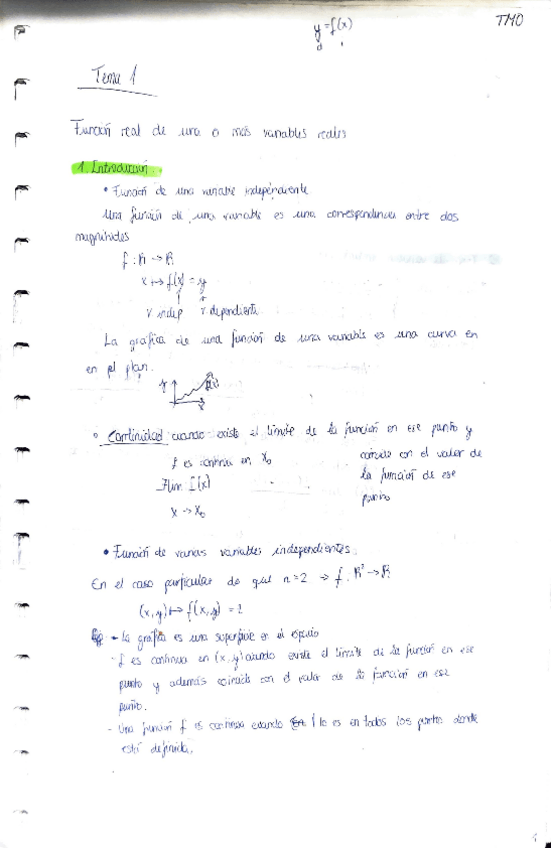 y = f(x)
TMO
Tema 1
Función real de una o más variables reales
1. Introducción
• Función de una variable independiente
Una función de una variable es una correspondencia entre dos
magnitudes
f : R → R
x ↦ f(x) = y
v indep v. dependiente
La gráfica de una función de una variable es una curva en
en el plan.
• Continuidad cuando existe el límite de la función en ese punto y
f es continua en x₀ coincide con el valor de
∃ lim f(x) la función de ese
x → x₀ punto
• Función de varias variables independientes
En el caso particular de que n=2 → f: R² → R
(x, y) ↦ f(x, y) = z
- La gráfica es una superficie en el espacio
- f es continua en (x, y) cuando existe el límite de la función en ese
punto y además coincide con el valor de la función en ese
punto.
- Una función f es continua cuando lo es en todos los puntos donde
está definida.